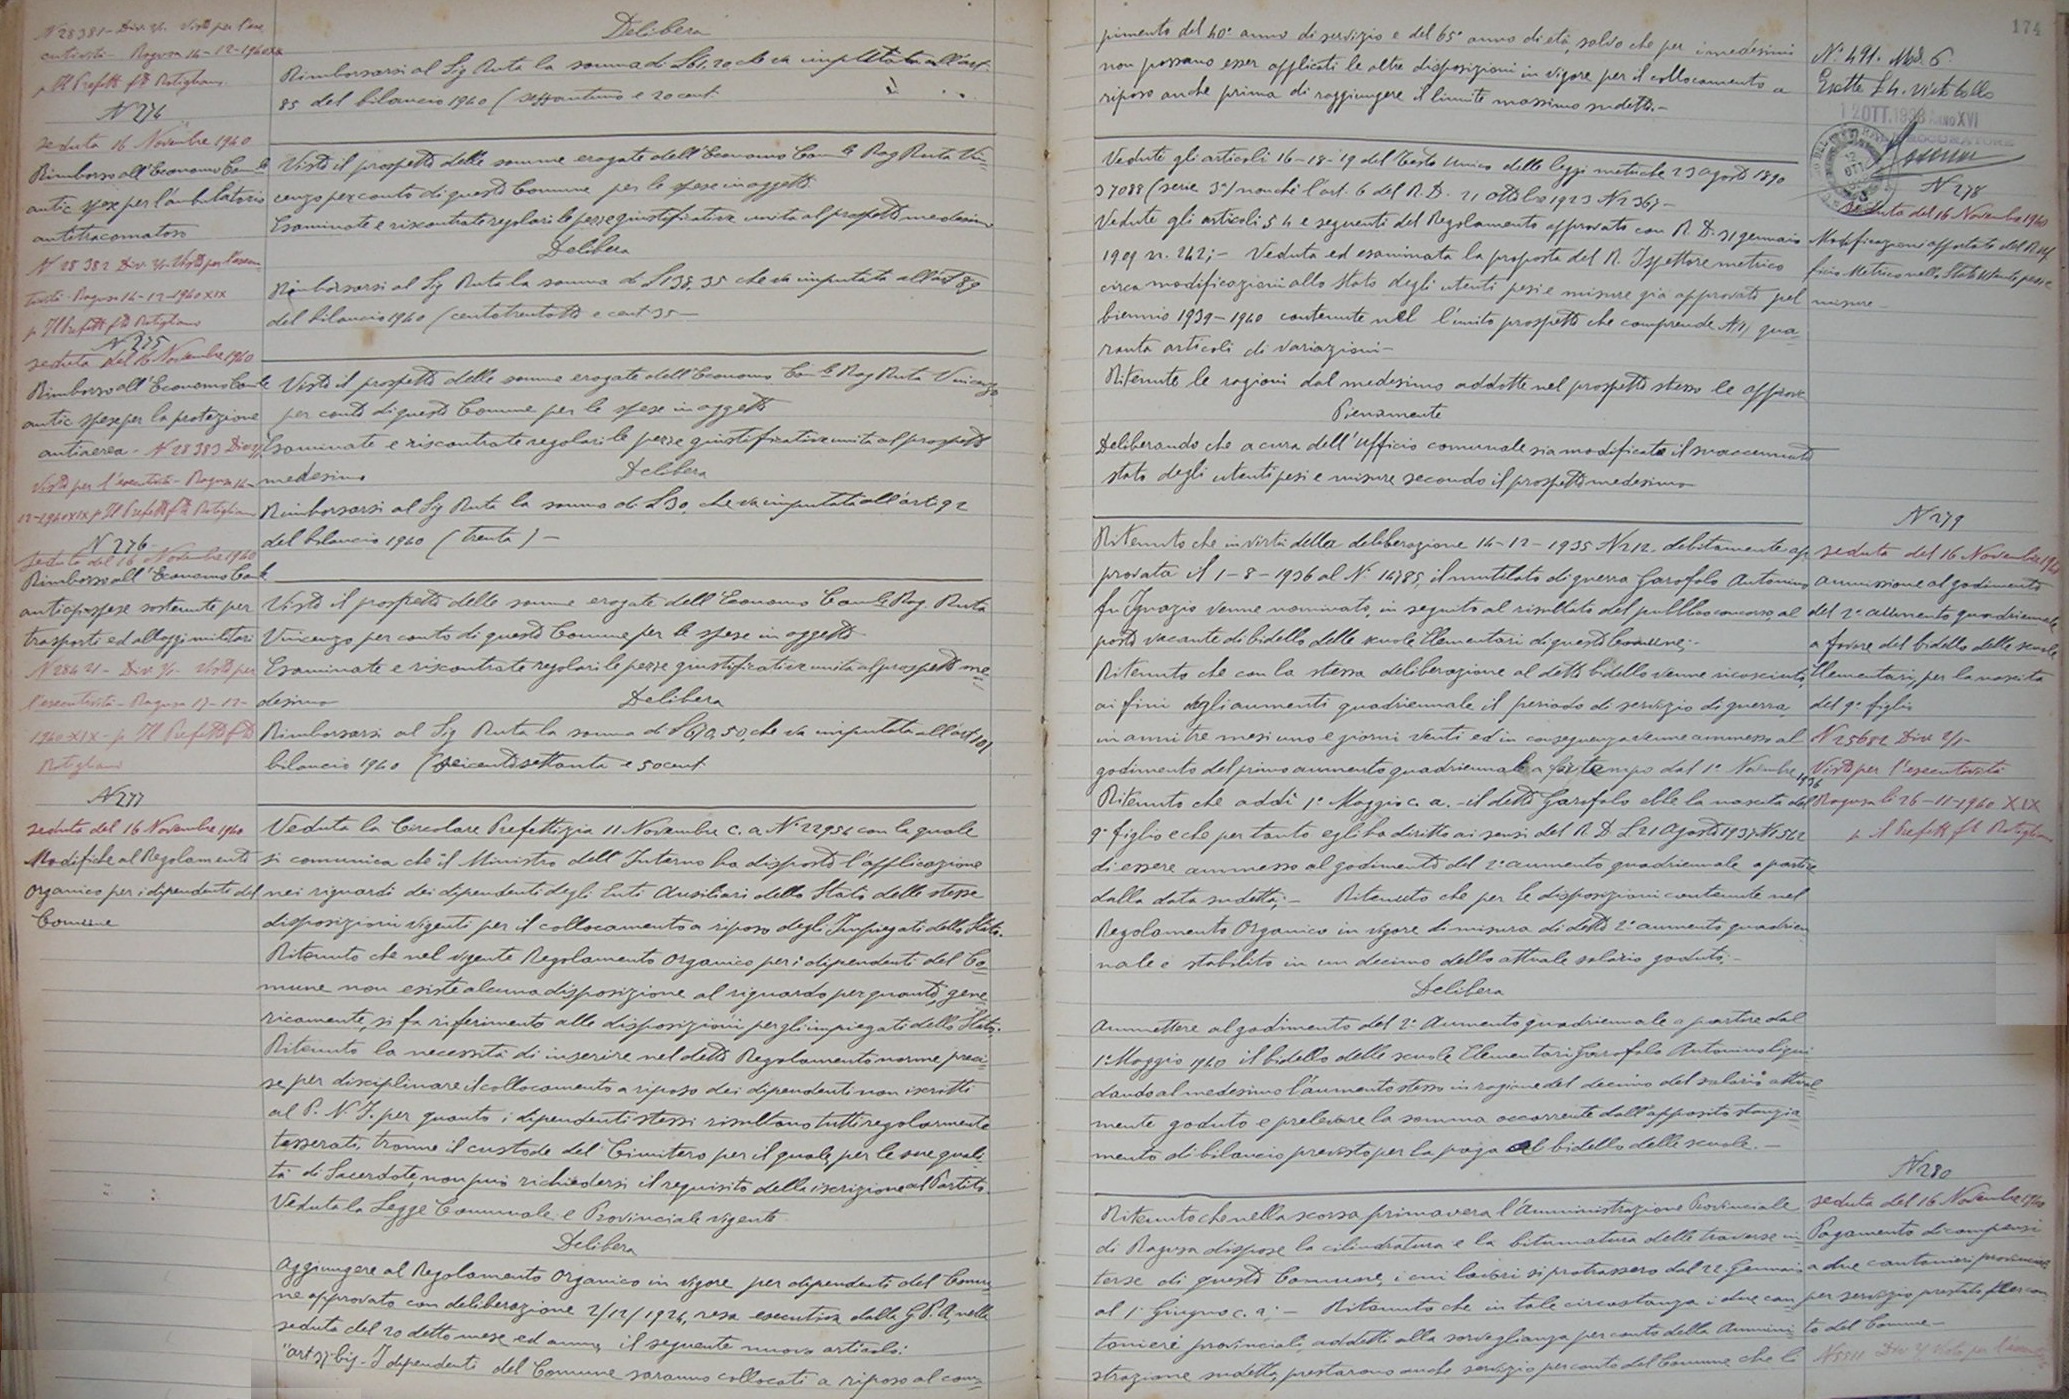 N 28381 - Div. 2/1. Visto per l'ese
cutività - Ragusa 14-12-1940 XIX
p. Il Prefetto fto Rotigliano
N 274
seduta 16 Novembre 1940
Rimborso all'Economo Com.le
antic. spese per l'ambulatorio
antitracomatoso
N 28382 Div. 2/1. Visto per l'esecu-
tività - Ragusa 14-12-1940 XIX
p. Il Prefetto fto Rotigliano
N 275
seduta del 16 Novembre 1940
Rimborso all'Economo Com.le
antic. spese per la protezione
antiaerea - N 28383 Div 2/1
Visto per l'esecutività - Ragusa 14-
12-1940 XIX p. Il Prefetto fto Rotigliano
N 276
seduta del 16 Novembre 1940
Rimborso all'Economo Com.le
antic. spese sostenute per
trasporti ed alloggi militari
- Div. 2/1. Visto per
l'esecutività - Ragusa 17-12-
1940 XIX - p. Il Prefetto fto
Rotigliano
N 277
seduta del 16 Novembre 1940
Modifiche al Regolamento
Organico per i dipendenti del
Comune
Delibera
Rimborsarsi al Sig Ruta la somma di L 61,20 che va imputata all'art.
85 del bilancio 1940 (sessantuno e 20 cent.
Visto il prospetto delle somme erogate dell'Economo Com.le Rag Ruta Vin=
cenzo per conto di questo Comune per le spese in oggetto
Esaminate e riscontrate regolari le pezze giustificative unite al prospetto medesimo
Delibera
Rimborsarsi al Sig Ruta la somma di L 138,35 che va imputata all'art 89
del bilancio 1940 (centotrentotto e cent. 35 -
Visto il prospetto delle somme erogate dell'Economo Com.le Rag Ruta Vincenzo
per conto di questo Comune per le spese in oggetto
Esaminate e riscontrate regolari le pezze giustificative unite al prospetto
medesimo Delibera
Rimborsarsi al Sig Ruta la somma di L 30, che va imputata all'art. 92
del bilancio 1940 (trenta) -
Visto il prospetto delle somme erogate dell'Economo Com.le Rag. Ruta
Vincenzo per conto di questo Comune per le spese in oggetto
Esaminate e riscontrate regolari le pezze giustificative unite al prospetto me=
desimo Delibera
Rimborsarsi al Sig Ruta la somma di L 670,50, che va imputata all'art 101
bilancio 1940 (seicentosettanta e 50 cent.
Veduta la Circolare Prefettizia 11 Novembre c. a. N° 22956 con la quale
si comunica che il Ministro dell'Interno ha disposto l'applicazione
nei riguardi dei dipendenti degli Enti Ausiliari dello Stato delle stesse
disposizioni vigenti per il collocamento a riposo degli Impiegati dello Stato.
Ritenuto che nel vigente Regolamento Organico per i dipendenti del Co=
mune non esiste alcuna disposizione al riguardo per quanto, gene=
ricamente, si fa riferimento alle disposizioni per gli impiegati dello Stato;
Ritenuto la necessità di inserire nel detto Regolamento norme preci=
se per disciplinare il collocamento a riposo dei dipendenti non iscritti
al P. N. F. per quanto i dipendenti stessi risultano tutti regolarmente
tesserati, tranne il custode del Cimitero per il quale, per le sue quali=
tà di Sacerdote, non può richiedersi il requisito della iscrizione al Partito.
Veduta la Legge Comunale e Provinciale vigente
Delibera
Aggiungere al Regolamento Organico in vigore per dipendenti del Comu=
ne approvato con deliberazione 2/12/1926, resa esecutiva dalla G.P.A, nella
seduta del 20 detto mese ed anno, il seguente nuovo articolo:
"art 57 bis - I dipendenti del Comune saranno collocati a riposo al com=
174
pimento del 40° anno di servizio e del 65° anno di età, salvo che per i medesimi
non possano esser applicati le altre disposizioni in vigore per il collocamento a
riposo anche prima di raggiungere il limite massimo sudetto. -
Vedute gli articoli 16-18-19 del Testo Unico delle leggi metriche 23 agosto 1890
7088 (serie 3ª) nonchè l'art. 6 del R. D. 21 ottobre 1923 N 2367 -
Vedute gli articoli 54 e seguenti del Regolamento approvato con R. D. 31 gennaio
1909 n. 242; - Veduta ed esaminata la proposta del R. Ispettore metrico
circa modificazioni allo Stato degli utenti pesi e misure già approvato pel
biennio 1939-1940 contenute nel l'unito prospetto che comprende N qua=
ranta articoli di variazioni -
Ritenute le ragioni dal medesimo addotte nel prospetto stesso le approva
Pienamente
Deliberando che a cura dell'Ufficio comunale sia modificato il suaccennato
stato degli utenti pesi e misure secondo il prospetto medesimo
Ritenuto che in virtù della deliberazione 14-12-1935 N 212 debitamente ap=
provata il 1-8-1936 al N° 14785, il mutilato di guerra Garofolo Antonino
fu Ignazio venne nominato, in seguito al risultato del pubblico concorso, al
posto vacante di bidello delle scuole Elementari di questo Comune; -
Ritenuto che con la stessa deliberazione al detto bidello venne riconosciuto,
ai fini degli aumenti quadriennale il periodo di servizio di guerra
in anni tre mesi uno e giorni venti ed in conseguenza venne ammesso al
godimento del primo aumento quadriennale a far tempo dal 1° Novembre 1936
Ritenuto che addì 1° Maggio c. a. - il detto Garofolo ebbe la nascita del
9° figlio e che per tanto egli ha diritto ai sensi del R. D. L 21 Agosto 1937 N 1542
di essere ammesso al godimento del 2° aumento quadriennale a partire
dalla data sudetta; - Ritenuto che per le disposizioni contenute nel
Regolamento Organico in vigore la misura di detto 2° aumento quadrien=
nale è stabilito in un decimo dello attuale salario goduto; -
Delibera
Ammettere al godimento del 2° Aumento quadriennale a partire dal
1° Maggio 1940 il bidello delle scuole Elementari Garofolo Antonino liqui
dando al medesimo l'aumento stesso in ragione del decimo del salario attual=
mente goduto e prelevare la somma occorrente dall'apposito stanzia=
mento di bilancio previsto per la paga al bidello delle scuole. -
Ritenuto che nella scorsa primavera l'Amministrazione Provinciale
di Ragusa dispose la cilindratura e la bitumatura delle traverse in=
terse di questo Comune, i cui lavori si protrassero dal 22 Gennaio
al 1° Giugno c. a; - Ritenuto che in tale circostanza i due can=
tonieri provinciali addetti alla sorveglianza per conto della Ammini=
strazione sudetta, prestarono anche servizio per conto del Comune che li
N. 491. Mod. 6
Esatte L 4. visto bollo
12 OTT. 1938 Anno XVI
PROCURATORE
N 278
seduta del 16 Novembre 1940
Modificazioni apportate dal R. Uf
ficio Metrico nello Stato Utenti, pesi e
misure -
N 279
seduta del 16 Novembre 1940
ammissione al godimento
del 2° aumento quadriennale
a favore del bidello delle scuole
Elementari, per la nascita
del 9° figlio
N 25682 Div. 2/1
Visto per l'esecutività
Ragusa li 26-11-1940 XIX
p. il Prefetto fto Rotigliano
N 280
seduta del 16 Novembre 1940
Pagamento di compensi
a due cantonieri provinciali
per servizio prestato per con
to del Comune -
Div 2/1 Visto per l'esecu